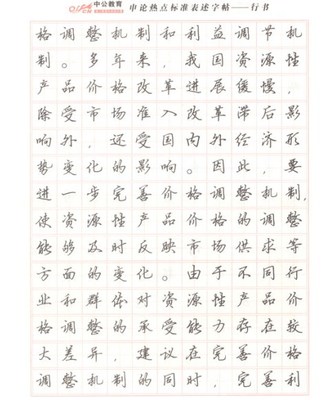 offcn 中公教育 申论热点标准表述字帖——行书
格调整机制和利益调节机
制。多年来，我国资源性
产品价格改革进展缓慢，
除受市场准入改革滞后影
响外，还受国内外经济形
势变化的影响。因此，要
进一步完善价格调整机制，
使资源性产品价格的调整
能够及时反映市场供求等
方面的变化。由于不同行
业和群体对资源性产品价
格调整的承受能力存在较
大差异，建议在完善价格
调整机制的同时，完善利